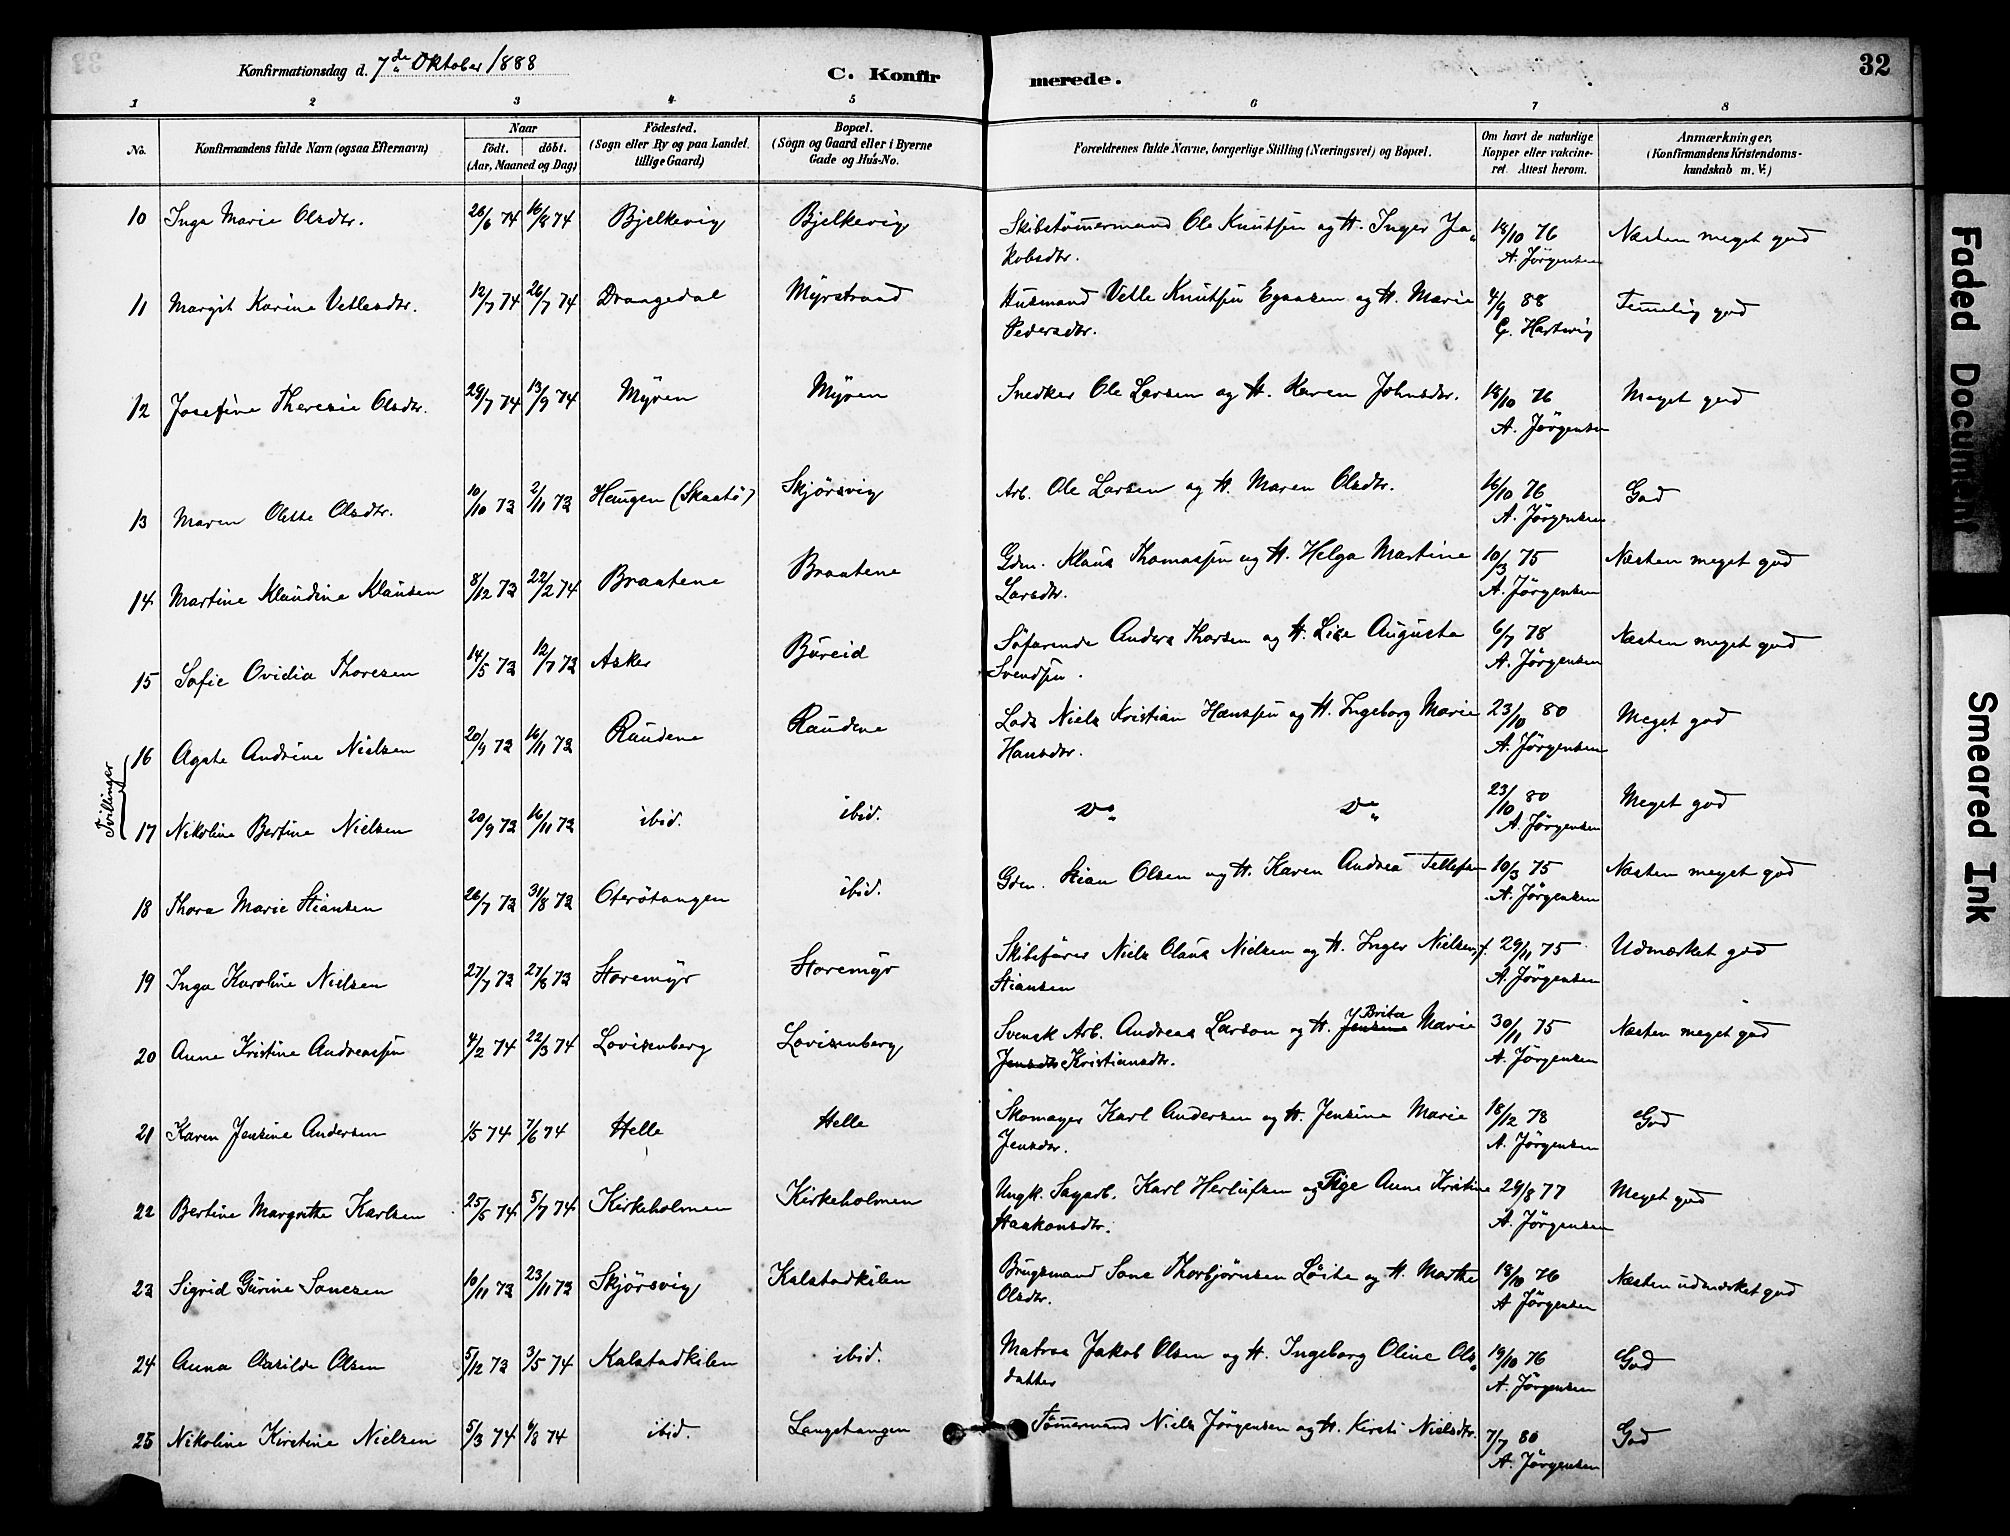 Konfirmationsdag d. 7de Oktober 1888
C. Konfir
merede.
32
1 2 3 4 5 6 7 8
No.
Konfirmandens fulde Navn (ogsaa Efternavn)
Naar
födt. döbt.
(Aar, Maaned og Dag)
Födested.
(Sogn eller By og paa Landet tillige Gaard)
Bopæl.
(Sogn og Gaard eller i Byerne Gade og Hus-No.
Forældrenes fulde Navne, borgerlige Stilling (Næringsvei) og Bopæl.
Om havt de naturlige Kopper eller vakcineret. Attest herom.
Anmærkninger,
(Konfirmandens Kristendomskundskab m. V.)
10 Inga Marie Olsdtr. 26/6 74 16/8 74 Bjelkevig Bjelkevig Skibstømmermand Ole Knutsen og H. Inger Ja- 18/10 76 Næsten meget god
kobsdtr. A. Jörgensen
11 Margit Karine Vetlesdtr. 12/7 74 26/7 74 Drangedal Myrstrand Husmand Vetle Knutsen og H. Marie 4/9 88 Temmelig god
Pedersdtr. G. Hartwig
12 Josefine Theresie Olsdtr. 29/7 74 13/9 74 Myren Myren Snedker Ole Larsen og H. Karen Johnsdtr. 18/10 76 Meget god
A. Jörgensen
13 Maren Olette Olsdtr. 10/10 73 2/11 73 Haugen (Skaatö) Skjørsvig Arb. Ole Larsen og H. Maren Olsdtr. 16/10 76 God
A. Jörgensen
14 Martine Klaudine Klausen 8/12 73 22/2 74 Braatene Braatene Gdm. Klaus Thomassen og H. Helga Martine 10/3 75 Næsten meget god
Larsdtr. A. Jörgensen
15 Sofie Ovidia Thoresen 14/5 73 12/7 73 Asker Bureid Søfarende Anders Thorsen og H. Lise Augusta 6/7 78 Næsten meget god
Svendsen. A. Jörgensen
Tvillinger
16 Agate Andrine Nielsen 20/9 73 16/11 73 Raudene Raudene Lods Niels Kristian Hanssen og H. Ingeborg Marie 23/10 80 Meget god
Hansdtr. A. Jörgensen
17 Nikoline Bertine Nielsen 20/9 73 16/11 73 ibid. ibid. Do Do 23/10 80 Meget god
A. Jörgensen
18 Thora Marie Stiansen 26/7 73 31/8 73 Oterötangen ibid. Gdm. Stian Olsen og H. Karen Andrea Tellefsen 10/3 75 Næsten meget god
A. Jörgensen
19 Inga Karoline Nielsen 27/7 73 27/6 73 Storemyr Storemyr Skibsfører Niels Olaus Nielsen og H. Inger Nielsen, f. 29/11 75 Udmærket god
Stiansen A. Jörgensen
20 Anne Kristine Andreassen 4/2 74 22/3 74 Lovisenberg Lovisenberg Svensk Arb. Andreas Larson og H. Jensine Brita Marie 30/11 75 Næsten meget god
Jensdtr Kristiansdtr. A. Jörgensen
21 Karen Jensine Andersen 1/5 74 7/6 74 Helle Helle Skomager Karl Andersen og H. Jensine Marie 18/12 78 God
Jensdtr. A. Jörgensen
22 Bertine Margrethe Karlsen 25/5 74 5/7 74 Kirkeholmen Kirkeholmen Ungk. Sagarb. Karl Herlufsen og Pige Anne Kristine 29/8 77 Meget god
Haakonsdtr. A. Jörgensen
23 Sigrid Gurine Sanesen 10/11 73 23/11 73 Skjørsvig Kalstadkilen Brugsmand Sane Thorbjörnsen Löite og H. Marthe 18/10 76 Næsten udmærket god
Olsdtr. A Jörgensen
24 Anna Aasilde Olsen 5/12 73 3/5 74 Kalstadkilen ibid. Matros Jakob Olsen og H. Ingeborg Oline Ols- 19/10 76 God
datter A. Jörgensen
25 Nikoline Kirstine Nielsen 5/3 74 9/8 74 ibid. Langetangen Tømmermand Niels Jörgensen og H. Kirsti Nielsdtr. 7/7 80 God
A. Jörgensen
Faded Document
Smeared Ink